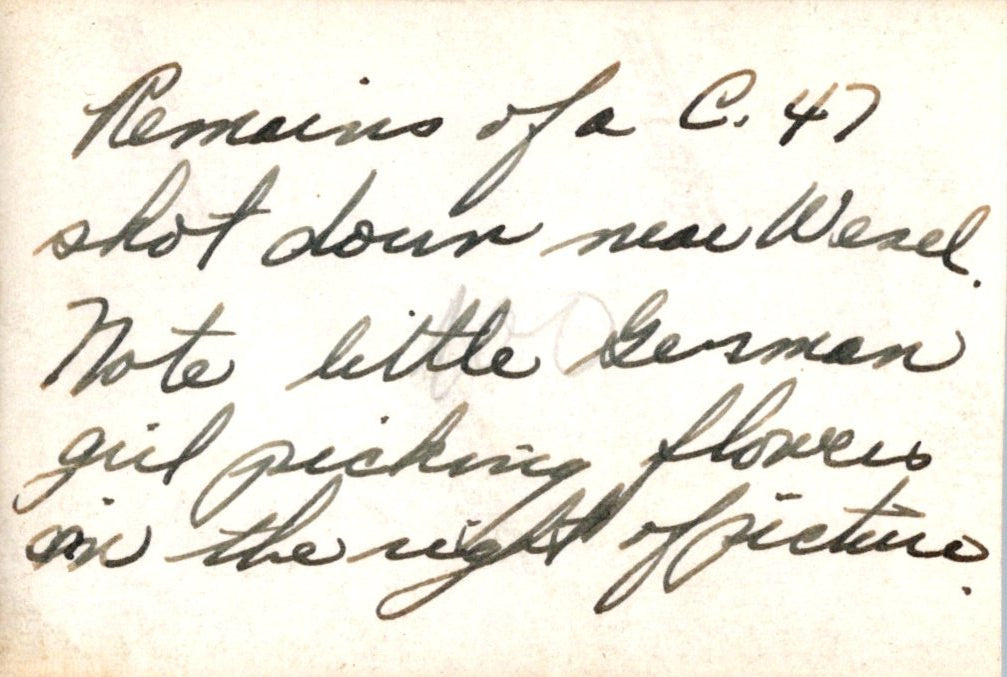 Remains of a C. 47
shot down near Wesel.
Note little German
girl picking flowers
in the right of picture.